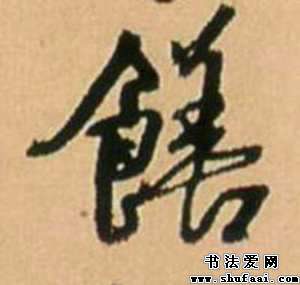 饍
书法爱网
www.shufaai.com